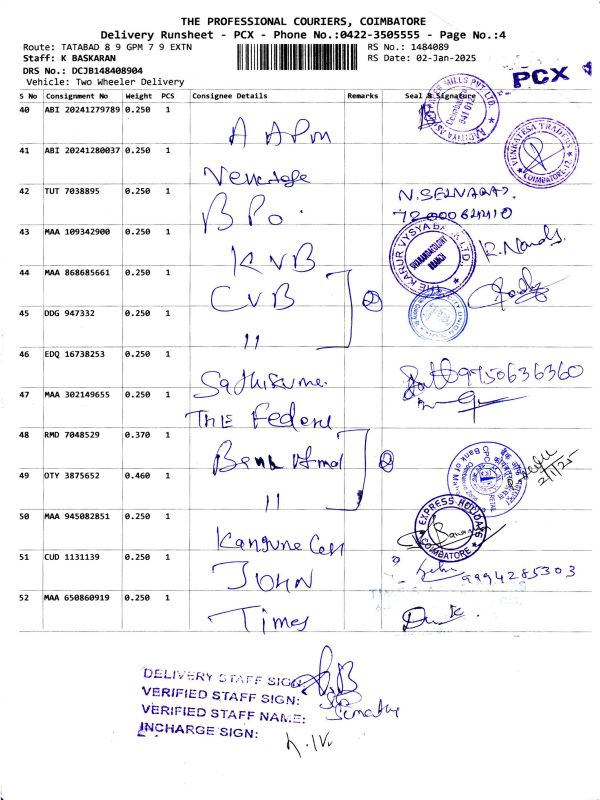 THE PROFESSIONAL COURIERS, COIMBATORE
Delivery Runsheet - PCX - Phone No.:0422-3505555 - Page No.:4
Route: TATABAD 8 9 GPM 7 9 EXTN
RS No.: 1484089
Staff: K BASKARAN
RS Date: 02-Jan-2025
DRS No.: DCJB148408904
Vehicle: Two Wheeler Delivery
PCX
S No Consignment No Weight PCS Consignee Details Remarks Seal & Signature
40 ABI 20241279789 0.250 1
41 ABI 20241280037 0.250 1
VENKATESA TRADERS COIMBATORE-12
42 TUT 7038895 0.250 1 B Po. N. SELVARAJ.
43 MAA 109342900 0.250 1 KVB THE KARUR VYSYA BANK LTD. K. Nands
44 MAA 868685661 0.250 1 CVB 2
45 DDG 947332 0.250 1 11
46 EDQ 16738253 0.250 1 9750636360
47 MAA 302149655 0.250 1 THE Federal
48 RMD 7048529 0.370 1 2
49 OTY 3875652 0.460 1 11 2/1/25
50 MAA 945082851 0.250 1 EXPRESS HOLIDAYS COIMBATORE
51 CUD 1131139 0.250 1 JOHN 9994285303
52 MAA 650860919 0.250 1 Times
DELIVERY STAFF SIGN:
VERIFIED STAFF SIGN:
VERIFIED STAFF NAME:
INCHARGE SIGN: